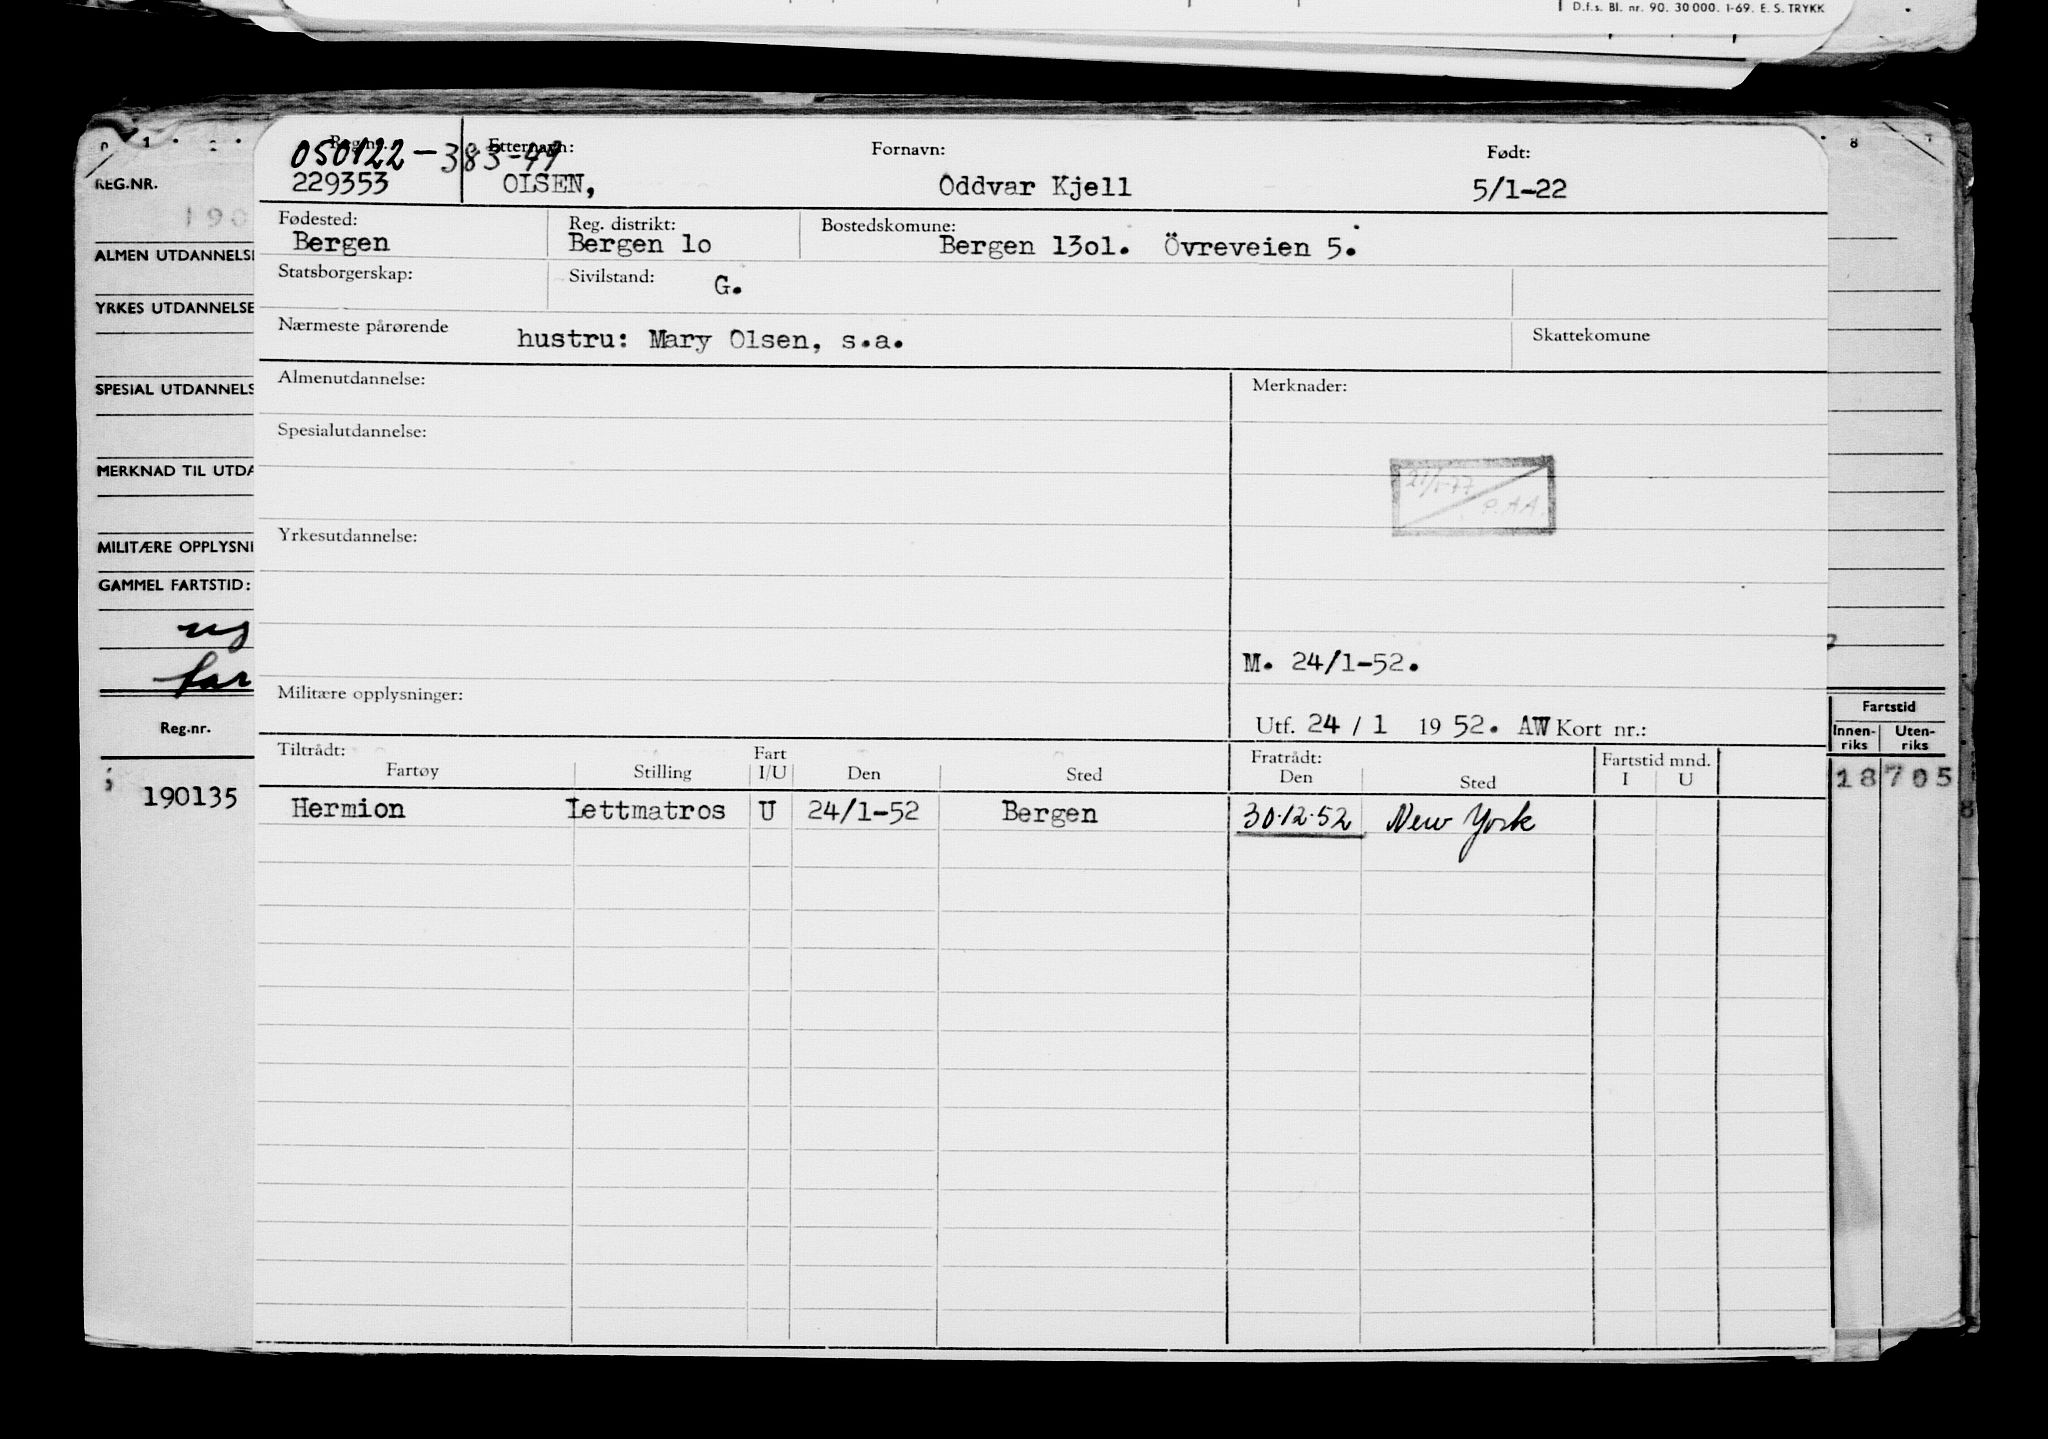 D.f.s. Bl. nr. 90. 30 000. 1-69. E. S. TRYKK
REG.NR.
190
ALMEN UTDANNELSE
YRKES UTDANNELSE
SPESIAL UTDANNELS
MERKNAD TIL UTDA
MILITÆRE OPPLYSNI
GAMMEL FARTSTID:
Reg.nr.
190135
Reg.nr. Etternavn: Fornavn: Født:
050122-383-47
229353 OLSEN, Oddvar Kjell 5/1-22
Fødested: Reg. distrikt: Bostedskomune:
Bergen Bergen 1o Bergen 13o1. Övreveien 5.
Statsborgerskap: Sivilstand: G.
Nærmeste pårørende hustru: Mary Olsen, s.a. Skattekomune
Almenutdannelse: Merknader:
Spesialutdannelse:
P.A.A.
Yrkesutdannelse:
M. 24/1-52.
Militære opplysninger:
Utf. 24 / 1 19 52. AW Kort nr.:
Tiltrådt: Fart Fratrådt: Fartstid mnd.
Fartøy Stilling I/U Den Sted Den Sted I U
Hermion Lettmatros U 24/1-52 Bergen 30.12.52 New York
Fartstid
Innen- Uten-
riks riks
18 705